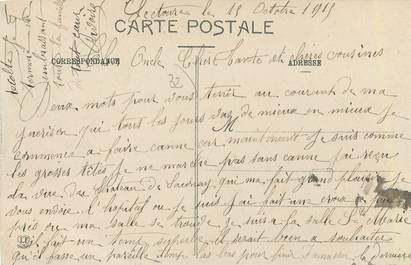 Lectoure le 18 Octobre 1915
CARTE POSTALE
CORRESPONDANCE
ADRESSE
Oncle Cher Tante et chères cousines
Deux mots pour vous tenir au courant de ma
guerison qui tous les jours va de mieux en mieux je
commence a faire canne car maintenant je suis comme
les grosses têtes je ne marche pas sans canne j'ai reçu
la vue du chateau de qui ma fait grand plaisir je
vous envoie l'hopital ou je suis j'ai fait un croix a peu
près ou ma salle se trouve je suis a la salle Ste Marie
il fait un temp superbe il serait bien a souhaiter
qu'il fasse un pareille temp pour finir la